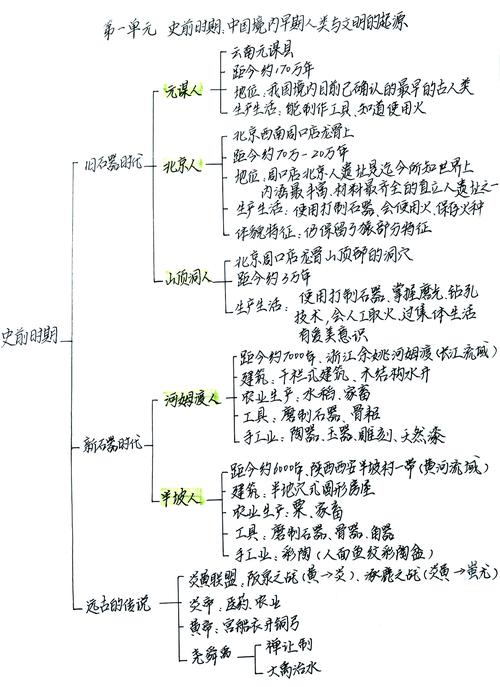 第一单元 史前时期:中国境内早期人类与文明的起源
史前时期
旧石器时代
元谋人
云南元谋县
距今约170万年
地位:我国境内目前已确认的最早的古人类
生产生活:能制作工具、知道使用火
北京人
北京西南周口店龙骨山
距今约70万-20万年
地位:周口店北京人遗址是迄今所知世界上
内涵最丰富、材料最齐全的直立人遗址之一
生产生活:使用打制石器、会使用火、保存火种
体貌特征:仍保留了猿部分特征
山顶洞人
北京周口店龙骨山顶部的洞穴
距今约3万年
生产生活:使用打制石器、掌握磨光、钻孔
技术、会人工取火、过集体生活
有爱美意识
新石器时代
河姆渡人
距今约7000年、浙江余姚河姆渡(长江流域)
建筑:干栏式建筑、木结构水井
农业生产:水稻、家畜
工具:磨制石器、骨耜
手工业:陶器、玉器、雕刻、天然漆
半坡人
距今约6000年、陕西西安半坡村一带(黄河流域)
建筑:半地穴式圆形房屋
农业生产:粟、家畜
工具:磨制石器、骨器、角器
手工业:彩陶(人面鱼纹彩陶盆)
远古的传说
炎黄联盟:阪泉之战(黄→炎)、涿鹿之战(炎黄→蚩尤)
炎帝:医药、农业
黄帝:宫船衣井铜弓
尧舜禹
禅让制
大禹治水